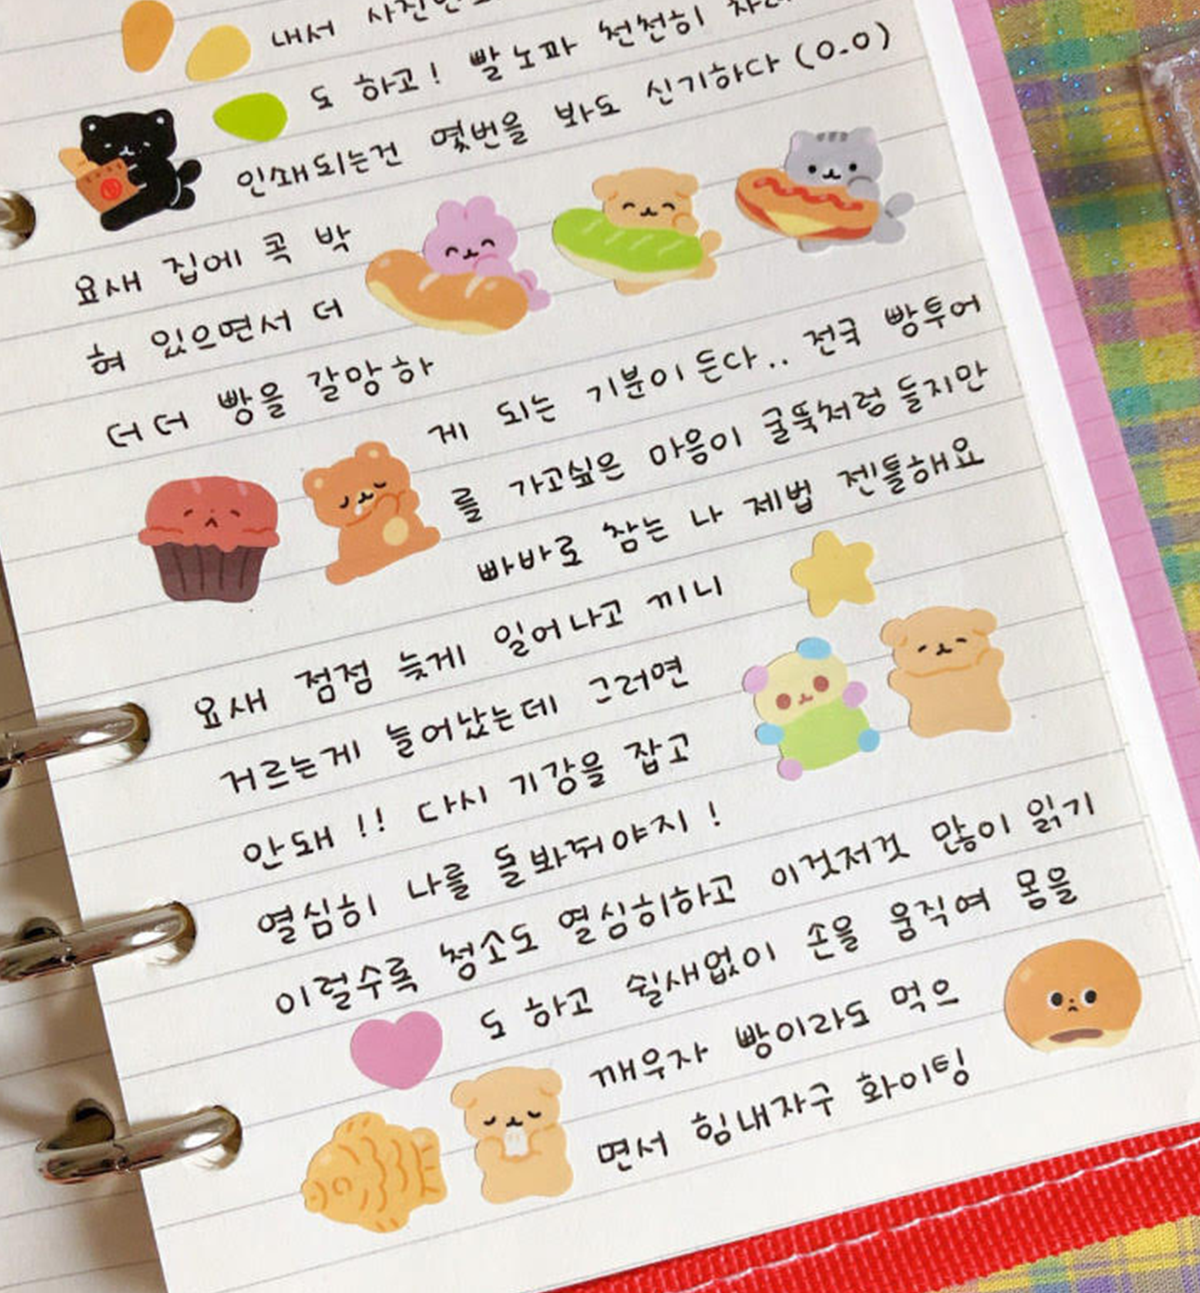 내서
도 하고! 빨노파 천천히
인쇄되는건 몇번을 봐도 신기하다 (O.O)
요새 집에 콕 박
혀 있으면서 더
더더 빵을 갈망하
게 되는 기분이 든다.. 전국 빵투어
를 가고싶은 마음이 굴뚝처럼 들지만
빠바로 참는 나 제법 젠틀해요
요새 점점 늦게 일어나고 끼니
거르는게 늘어났는데 그러면
안돼!! 다시 기강을 잡고
열심히 나를 돌봐줘야지!
이럴수록 청소도 열심히하고 이것저것 많이 읽기
도 하고 쉴새없이 손을 움직여 몽을
깨우자 빵이라도 먹으
면서 힘내자구 화이팅